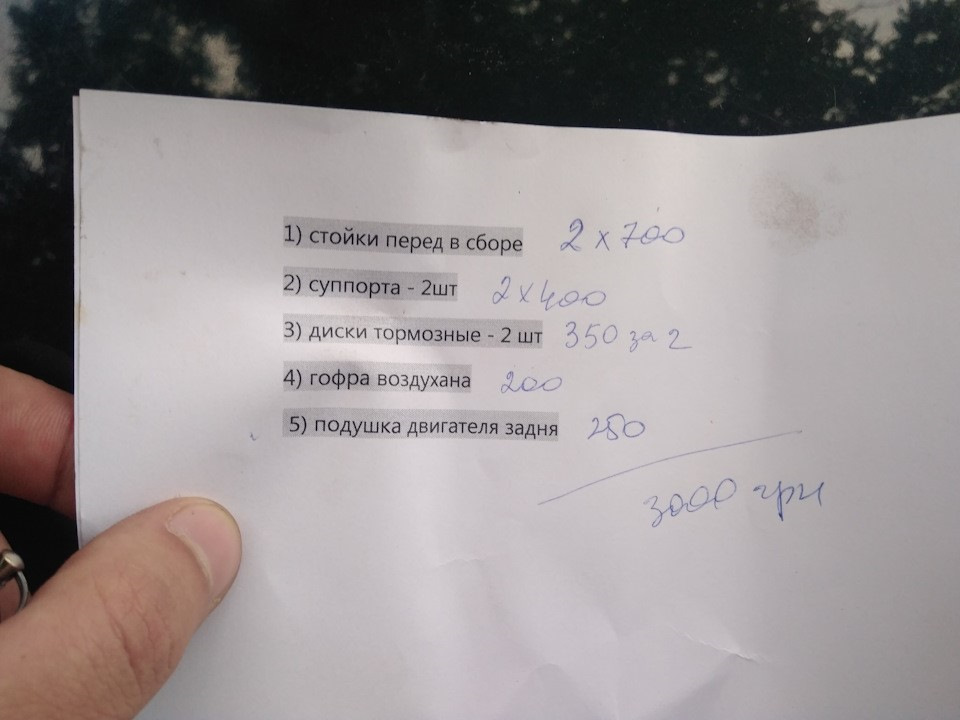 1) стойки перед в сборе 2 х 700
2) суппорта - 2шт 2 х 400
3) диски тормозные - 2 шт 350 за 2
4) гофра воздухана 200
5) подушка двигателя задня 250
3000 грн